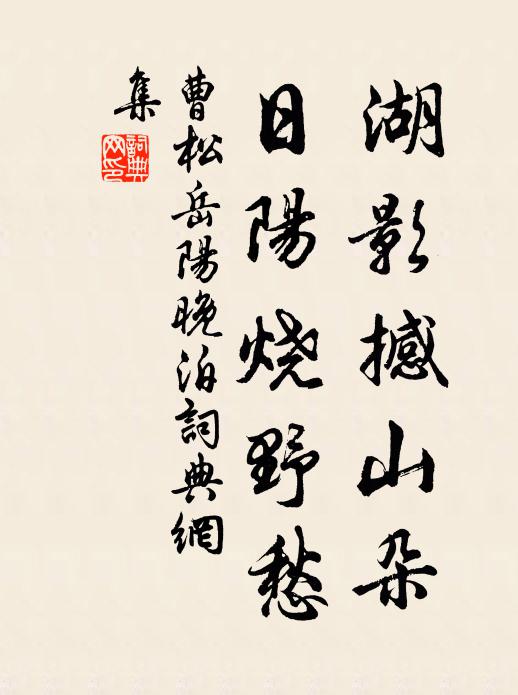 湖影撼山朵
日陽烧野愁
曹松岳陽晚泊詞典網
集
詞典
网印